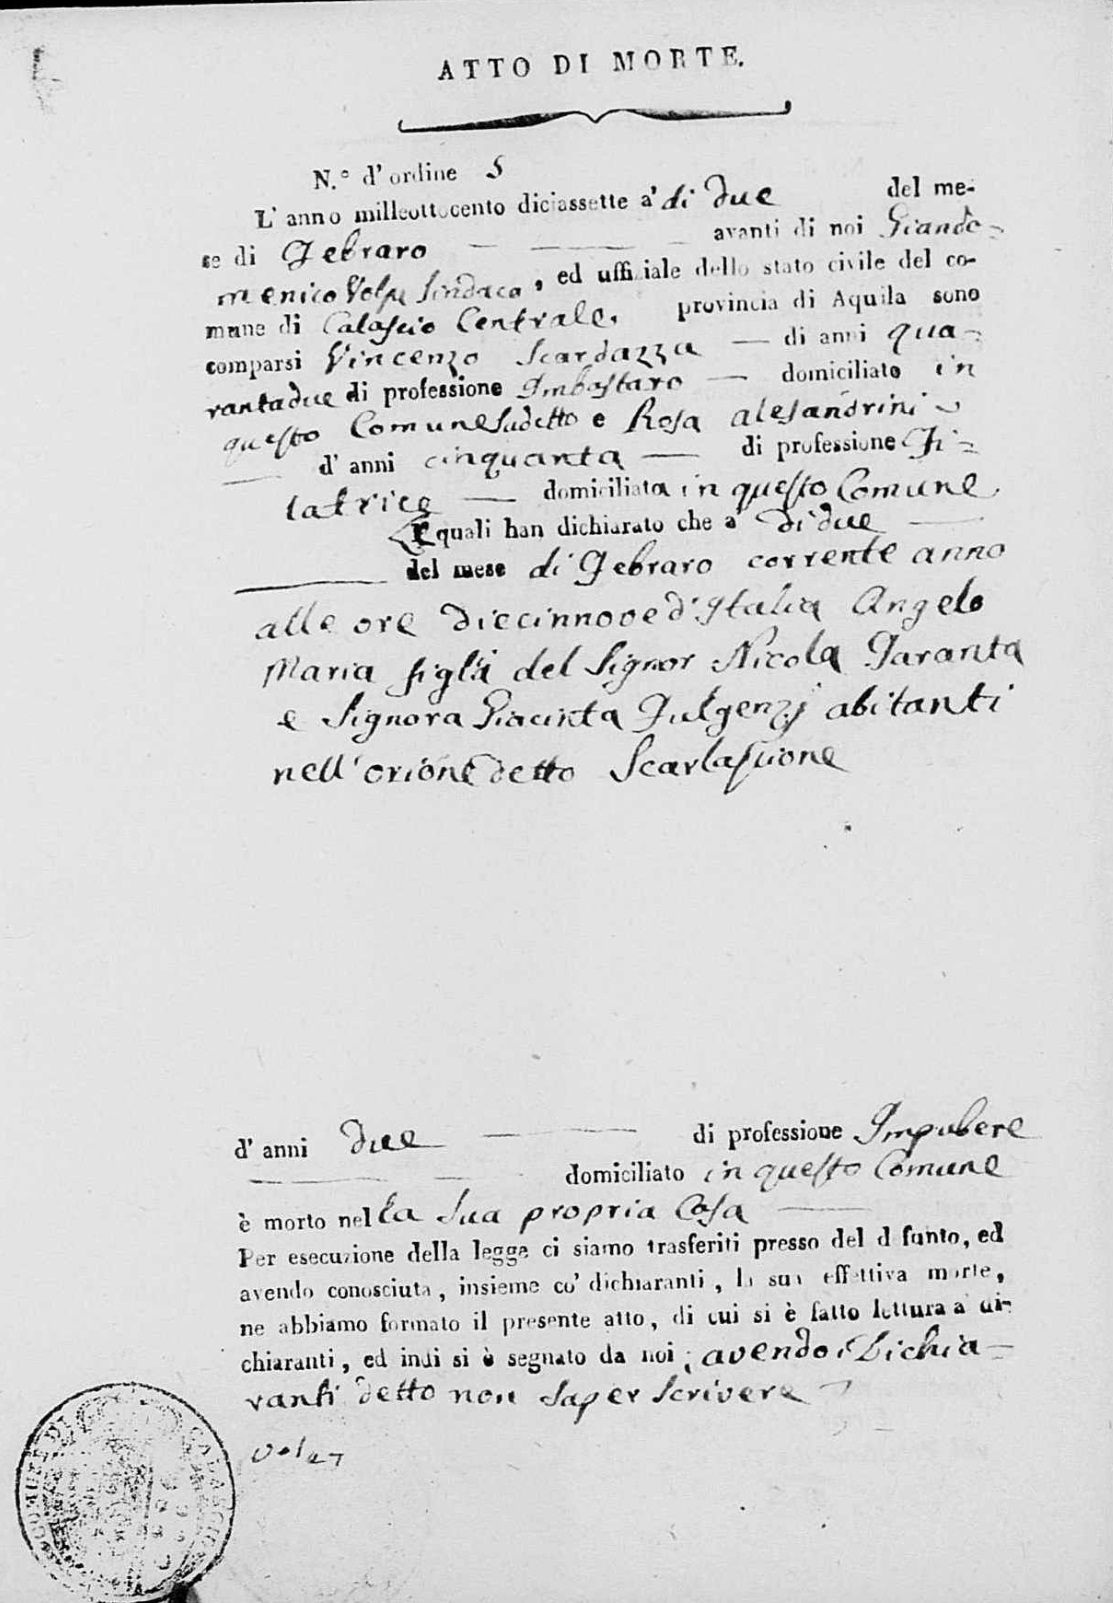 ATTO DI MORTE.
N.° d'ordine 5
L'anno milleottocento diciassette a' di due del me-
se di Febraro avanti di noi Giando-
menico Volpe Sindaco, ed uffiziale dello stato civile del co-
mune di Calascio Centrale. provincia di Aquila sono
comparsi Vincenzo Scardazza di anni qua-
rantadue di professione Imbastaro domiciliato in
questo Comune sudetto e Rosa Alesandrini
d'anni cinquanta di professione Fi-
latrice domiciliata in questo Comune
E quali han dichiarato che a' di due
del mese di Febraro corrente anno
alle ore diecinnove d'Italia Angelo
Maria figli del Signor Nicola Taranta
e Signora Giacinta Fulgenzj abitanti
nell'orione detto Scarlascione
d'anni due di professione Impubere
domiciliato in questo Comune
è morto nella sua propria Casa
Per esecuzione della legge ci siamo trasferiti presso del d funto, ed
avendo conosciuta, insieme co' dichiaranti, la sua effettiva morte,
ne abbiamo formato il presente atto, di cui si è fatto lettura a' di-
chiaranti, ed indi si è segnato da noi, avendo i Dichia-
ranti detto non saper scrivere
Volpe
COMUNE DI CALASCIO